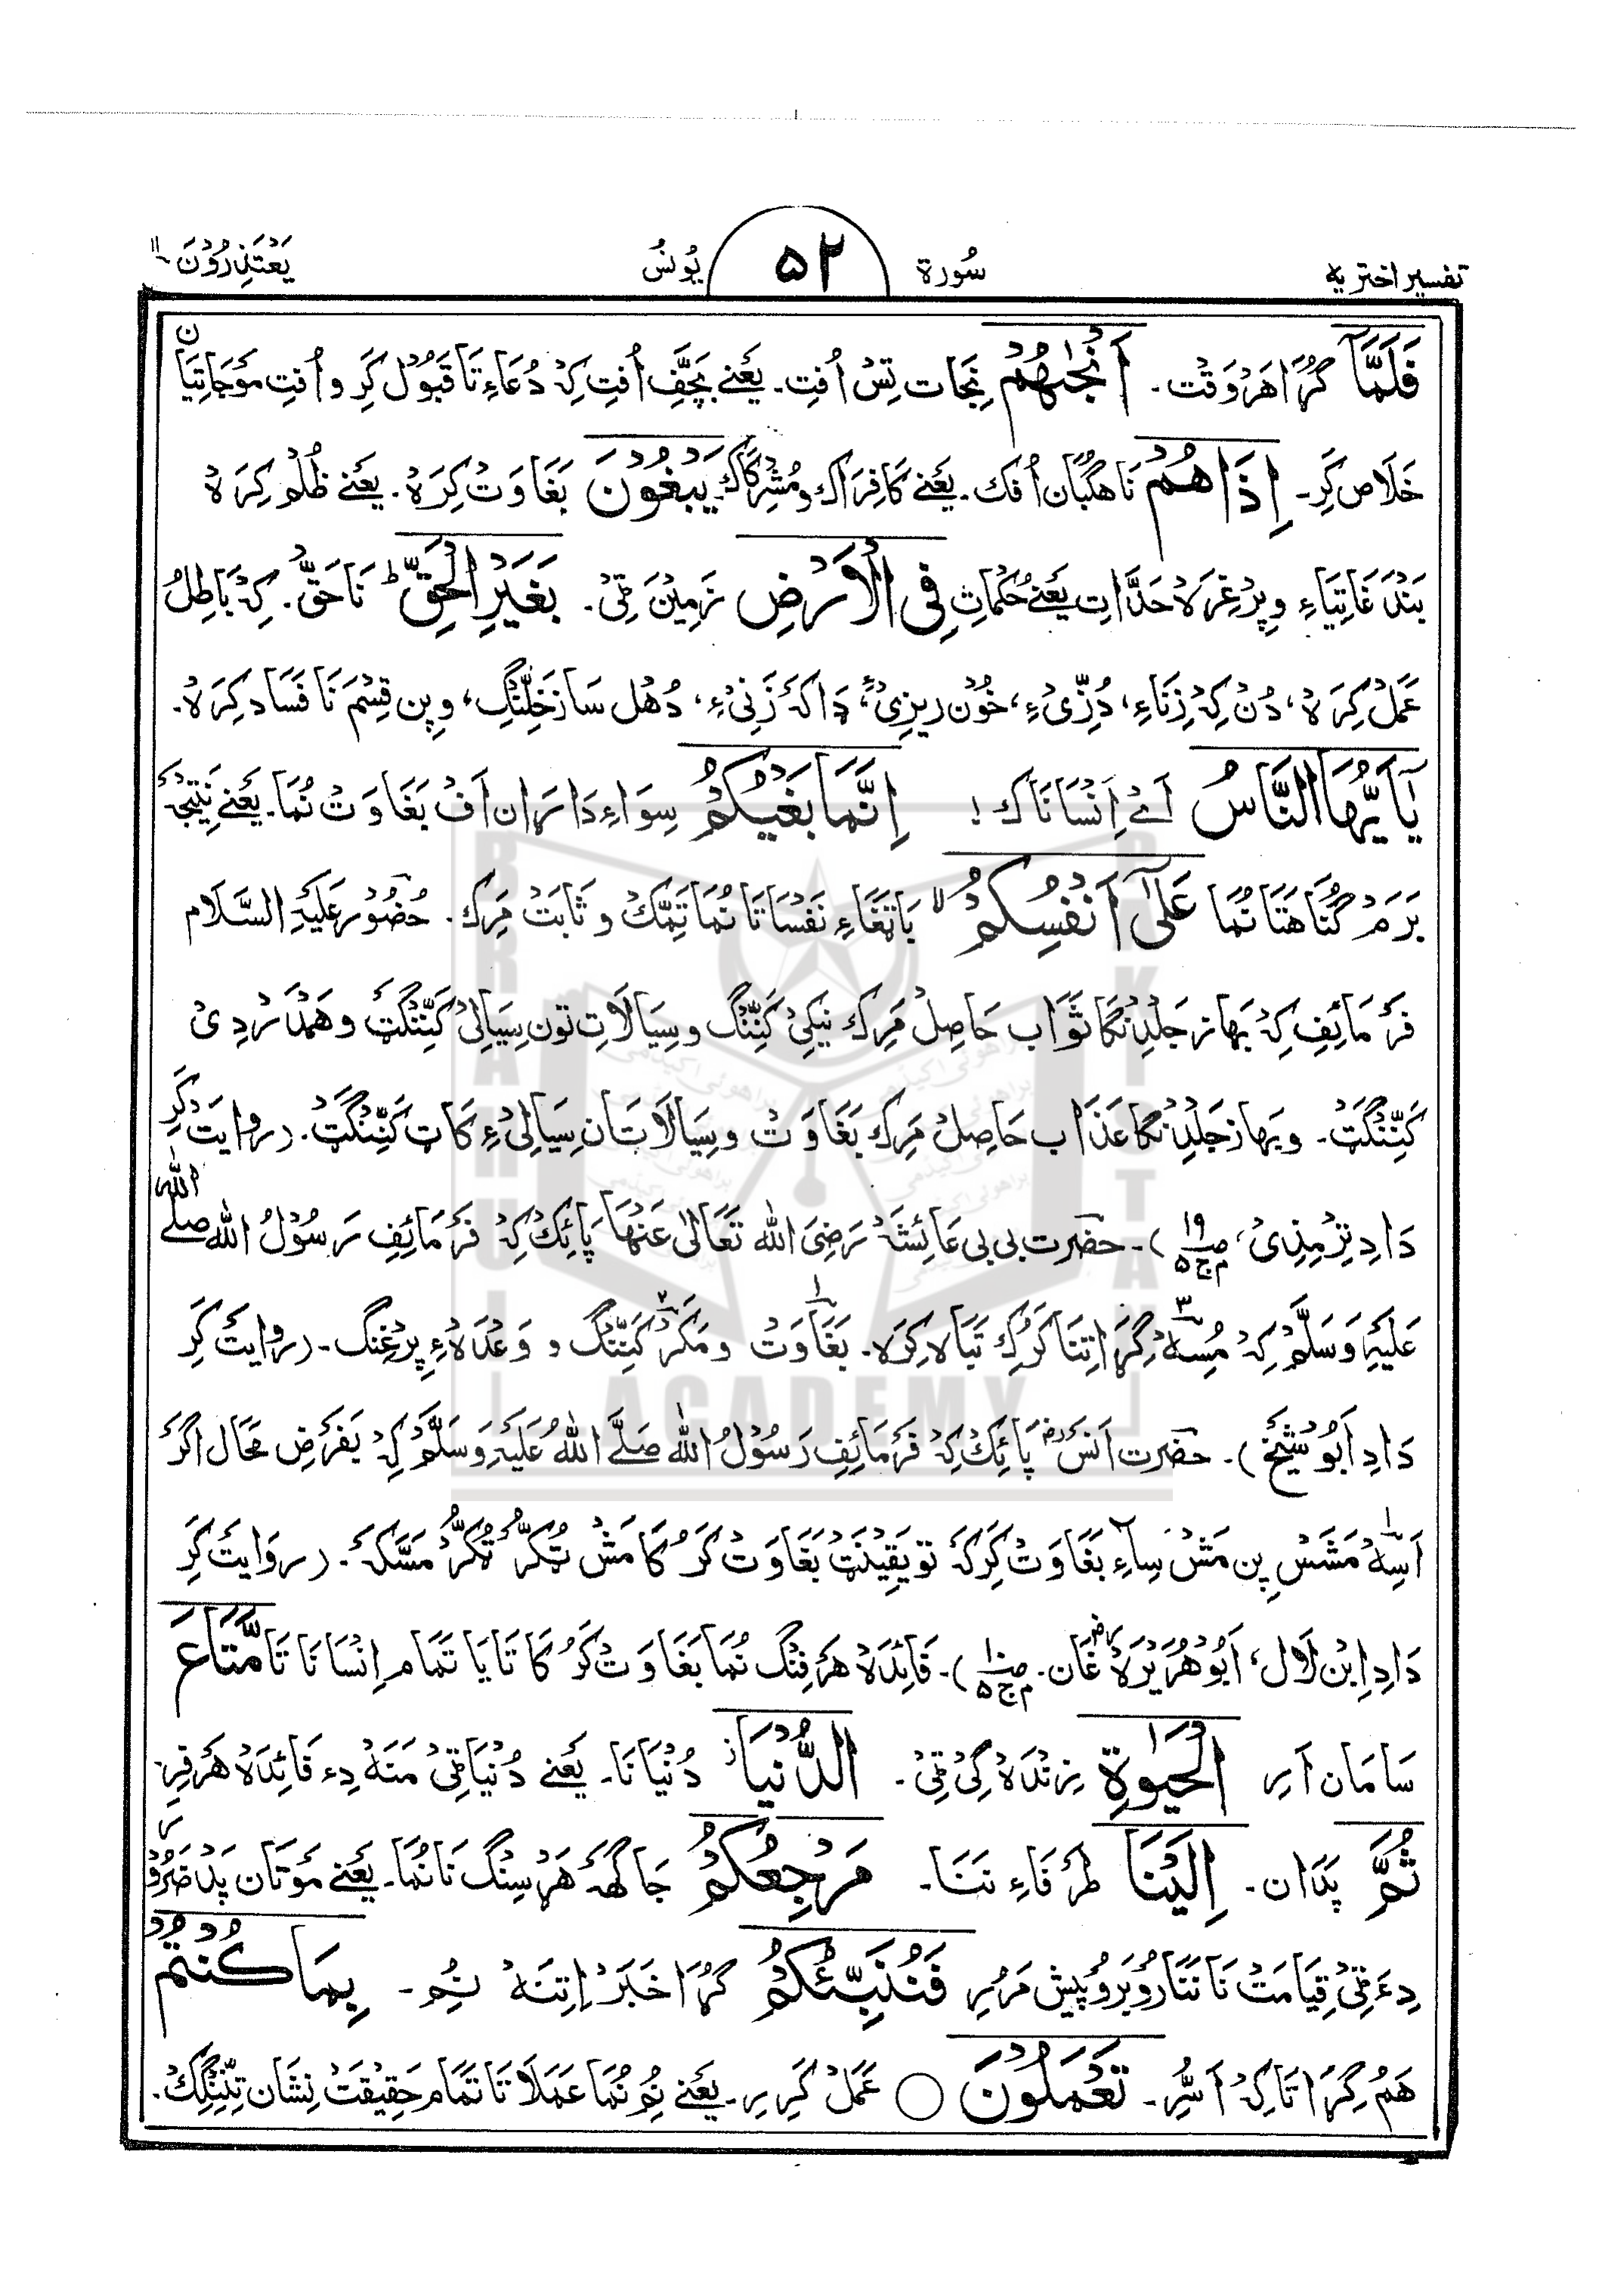 تفسیر اختریه سُورة ۵۲ یُونسُ یَعْتَذِرُوْنَ ۱۱
فَلَمَّآ گُرَا هَرْوَقْت ۔ اَنْجٰىهُمْ نِجَات تِسْ اُفتِ ۔ یَعْنے بَچَّفِ اُفتِ کِہْ دُعَاءِ تَا قَبُوْل کَرِ و اُفتِ مَوْجَاتِیَان
خَلَاص کَرِ ۔ اِذَا هُمْ نَاهگَهَان اُفک ۔ یَعْنے کَافِرَاک و مُشْرِکَاک ۔ یَبْغُوْنَ بَغَاوَتْ کِرَہْ ۔ یَعْنے ظُلْم کِرَہْ
بَنْدَغَاتِیَاءِ و پِرْغِرَہْ حَدَّاتِ یَعْنے حُکْمَاتِ فِی الْاَرْضِ زَمِیْن ٹِیْ ۔ بَغَیْرِ الْحَقِّ ؕ نَاحَقُّ ۔ کِہْ بَاطِلُ
عَمَلْ کِرَہْ ، دُنْ کِہْ زِنَاءِ ، دُزِّیْءِ ، خُوْن رِیزِیْءِ ، ڈَاکَہ زَنِیْءِ ، دُهْل سَاز خَلِّنْگِ ، و پِن قِسْم نَا فَسَاد کِرَہْ ۔
یٰۤاَیُّهَا النَّاسُ اَےْ اِنْسَانَاک ! اِنَّمَا بَغْیُكُمْ سِوَاءِ دَارَان اَفْ بَغَاوَتْ نُمَا ۔ یَعْنے نَتِیْجَہْ
بَرَمْ گُنَاهَتَا نُمَا عَلٰۤى اَنْفُسِكُمْ ۙ بَاتَغَاءِ نَفْسَاتَا نُمَا تِمَّکْ و ثَابَتْ مَرِک ۔ حُضُوْر عَلَیْہِ السَّلَام
فَرْمَائِفِ کِہْ بَهَاز جَلْدِنْگَا ثَوَاب حَاصِلْ مَرِک نیکِیْ کَنِّنْگ و سِیَالَاتِ تون سِیَالِیْ کَنِّنْگٹ و هَمْدَرْدِیْ
کَنِّنْگَتْ ۔ و بَهاز جَلْدِنْگا عَذَاب حَاصِلْ مَرِک بَغَاوَتْ و سِیَالَاتَان سِیَالِیْءِ کَاٹ کَنِّنْگٹْ ۔ (رِوایَتْ کَرِ
دَادِ تِرْمِذِیْ ، صـ ۱۹ م ج ۵ ) ۔ حضرت بی بی عَائِشَہْ رَضِیَ اللّٰه تَعَالٰی عَنْهَا پَائِکْ کِہْ فَرْمَائِفِ رَسُوْلُ اللّٰه صَلَّے اللّٰهُ
عَلَیْہِ وَسَلَّمْ کِہْ مُسِہْ ۳ گِرَا تِنَا کَرِک تَبَاہ کِرَہ ۔ بَغَاوَتْ ۱ و مَکْر ۲ کَنِّنْگ و وَعْدَہءِ پِرْغِنْگ ۔ (رِوایَتْ کَرِ
دَادِ اَبُوْ شَیْخْ ) ۔ حضرت اَنَسْ ؓ پَائِکْ کِہْ فَرْمَائِفِ رَسُوْلُ اللّٰه صَلَّے اللّٰهُ عَلَیْہِ وَسَلَّمْ کِہْ یَفَرْضِ مَحَال اَگَرْ
اَسِہْ ۱ مَشَسْ پِن مَشْ سِاءِ بَغَاوَتْ کَرِکَہ تو یَقِیْنَتْ بَغَاوَتْ کَرُکَا مَشْ تُکُرْ تُکُرْ مَسَّکَہ ۔ (رِوَایَتْ کَرِ
دَادِ اِبْن لَال ، اَبُوْ هُرَیْرَہْ ؓ غَان ۔ صـ ۱۰ م ج ۵ ) ۔ فَائِدَہْ هَرْفِنْگ نُمَا بَغَاوَتْ کَرُکَا تَایَا تَمَام اِنْسَانَاتَا مَّتَاعَ
سَامَان اَرِ الْحَیٰوةِ زِنْدَہْ گِیْ ٹِیْ ۔ الدُّنْیَا ؗ دُنْیَا نَا ۔ یَعْنے دُنْیَا ٹِیْ مَنَہْ دِء فَائِدَہْ هَرْفِرِ
ثُمَّ پَدَان ۔ اِلَیْنَا طَرْفَاءِ نَنَا ۔ مَرْجِعُكُمْ جَاگَهہْ هَرْسِنْگ نَا نُمَا ۔ یَعْنے مَوْتَان پَد ضَرُوْر
دِءَ ٹِیْ قِیَامَتْ نَا نَنَا رُوْبَرُوْ پیش مَرِرِ فَنُنَبِّئُكُمْ گُرَا خَبَرْ اِتِنَہْ نُمِ ۔ بِمَا كُنْتُمْ
هَمُ گِرَاتَا کِہْ اَسُّرِ ۔ تَعْمَلُوْنَ ○ عَمَلْ کَرِیرِ ۔ یَعْنے نُمِ نُمَا عَمَلَاتَا تَمَام حَقِیْقَتْ نِشَان تِنِّنْگِکْ ۔
BRAHUI ACADEMY PAKISTAN